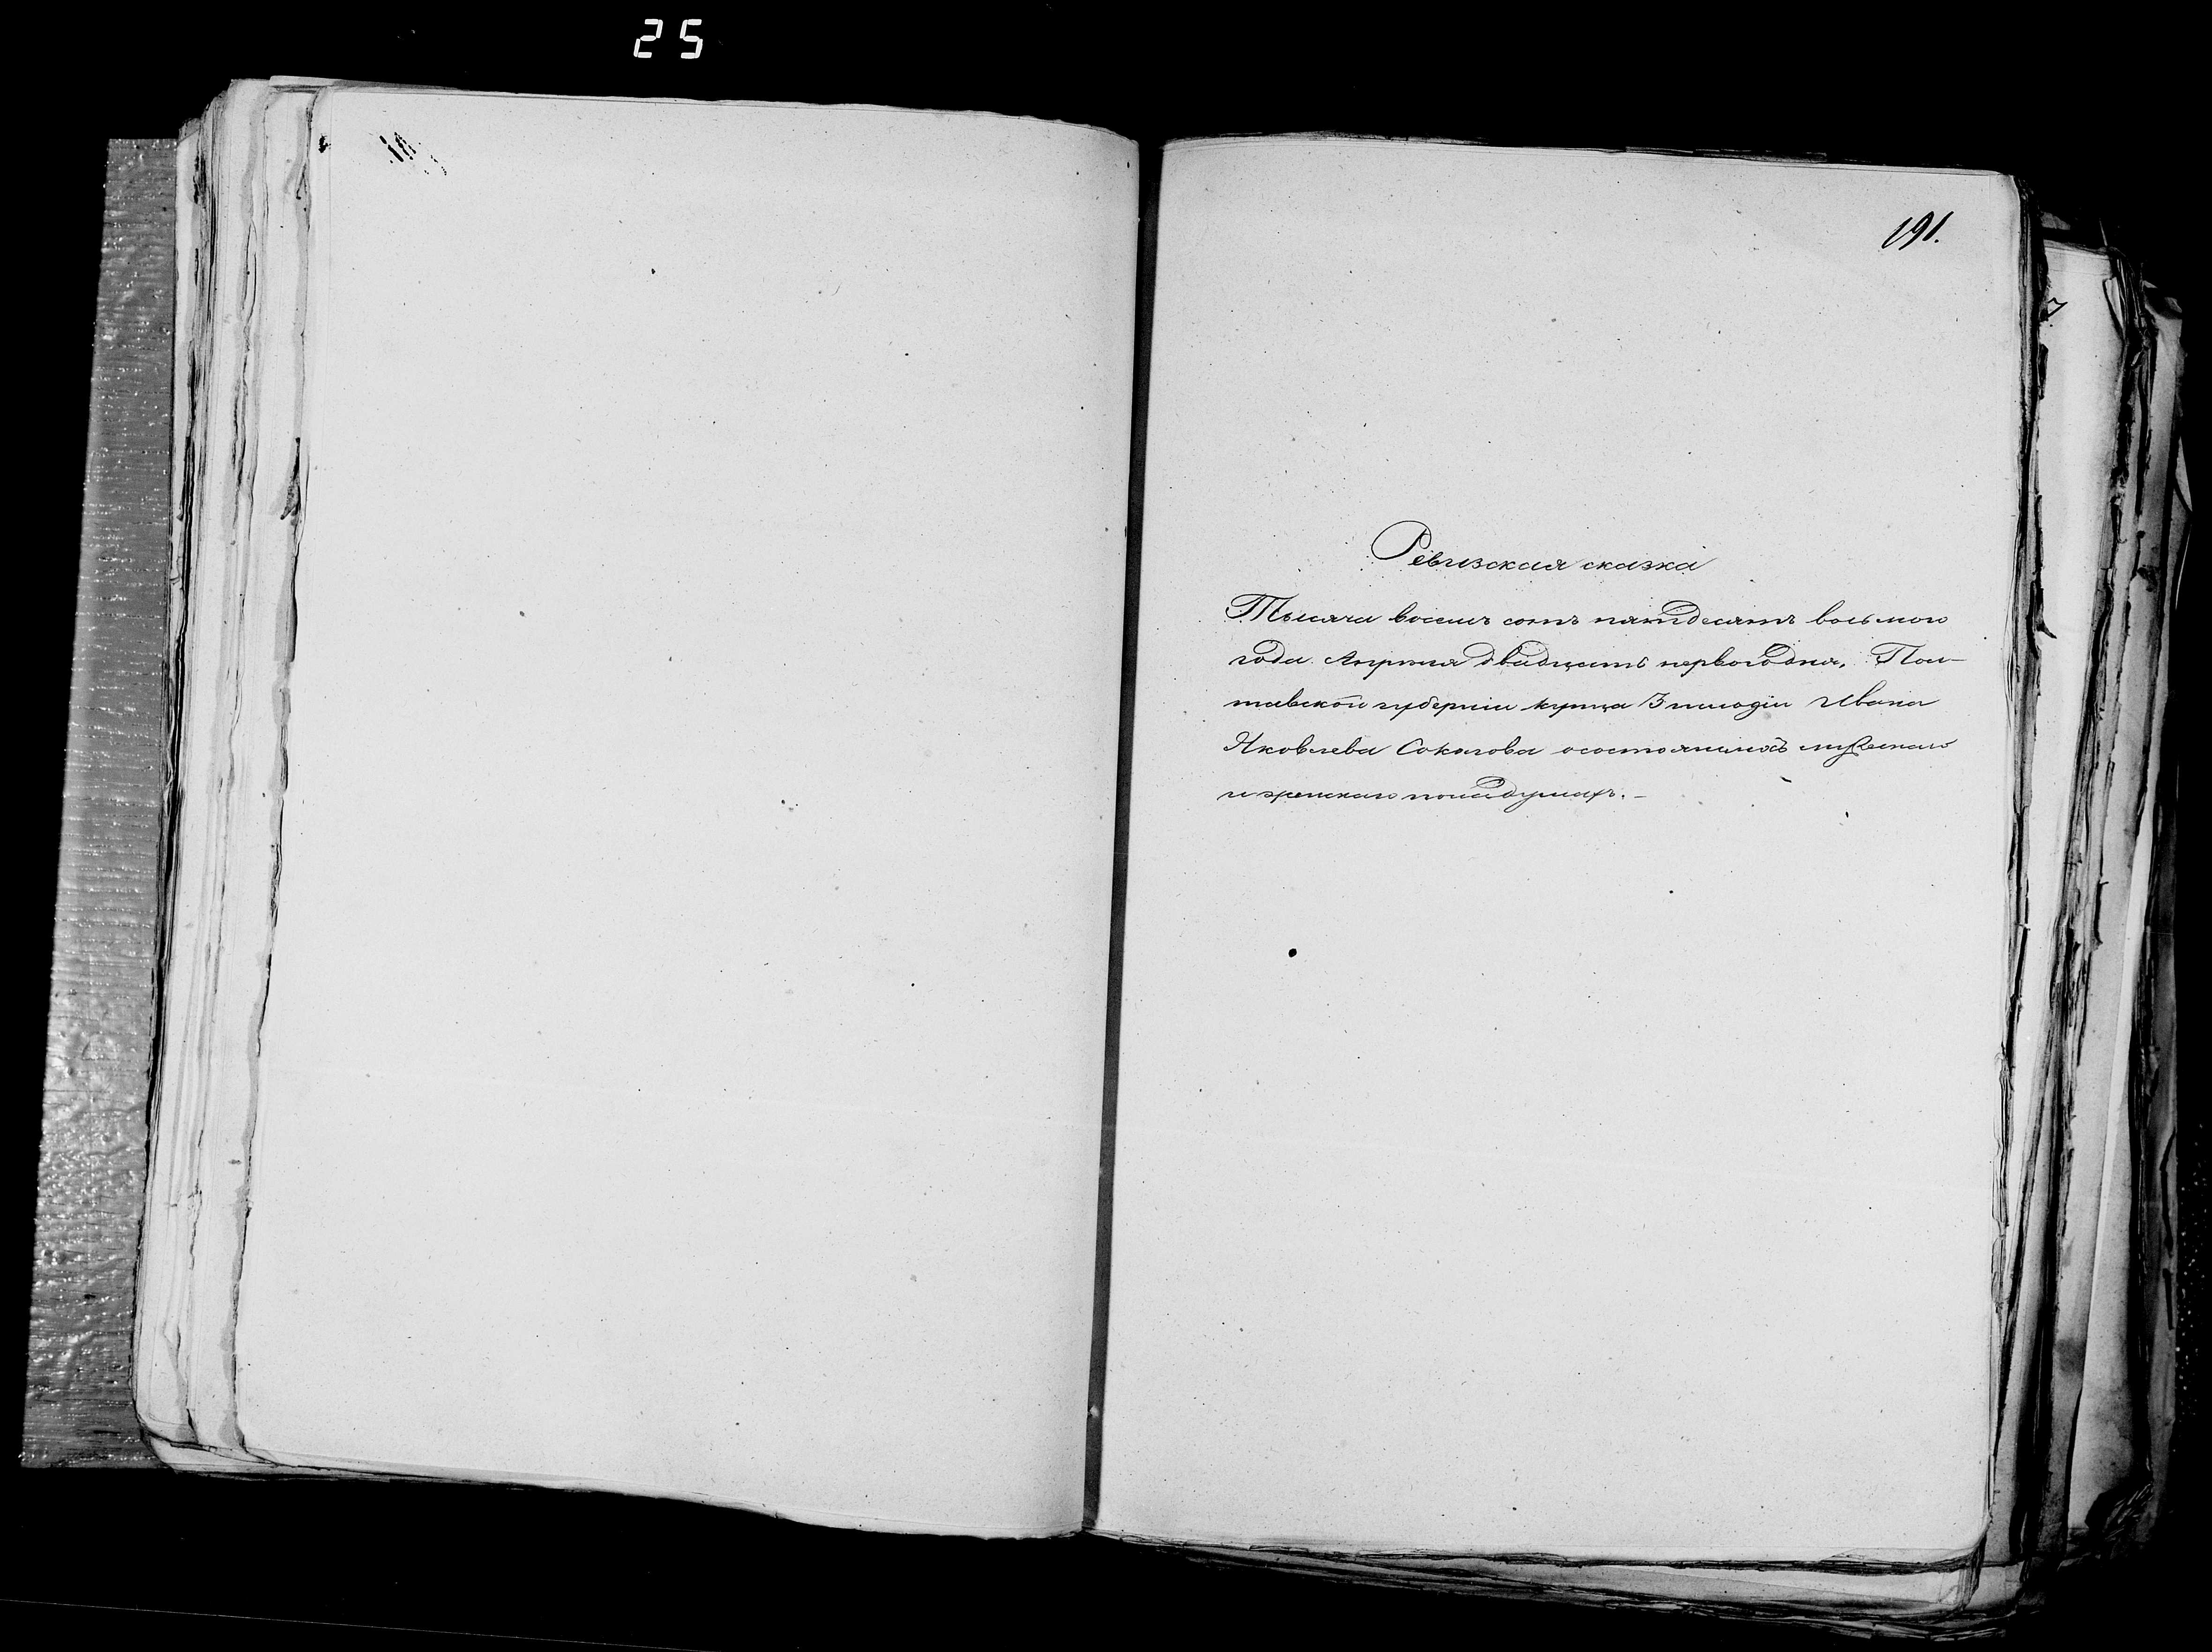 25
191.
Ревизская сказка
Тысяча восемь сотъ пятьдесятъ восьмого
года Апреля двадцать первого дня, Пол-
тавской губерніи купца 3 гильдіи Ивана
Яковлева Соколова о состоящихъ мужескаго
и женскаго пола душахъ. –